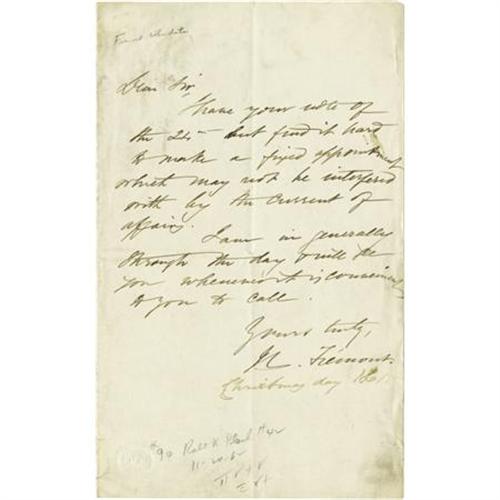 Dear Sir
I have your note of
the 24th but find it hard
to make a fixed appointment
which may not be interfered
with by the current of
affairs. I am in generally
through the day & will see
you whenever it is convenient
to you to call.
Yours truly,
J.C. Frémont.
Christmas day 1861.
#90
11-20-62